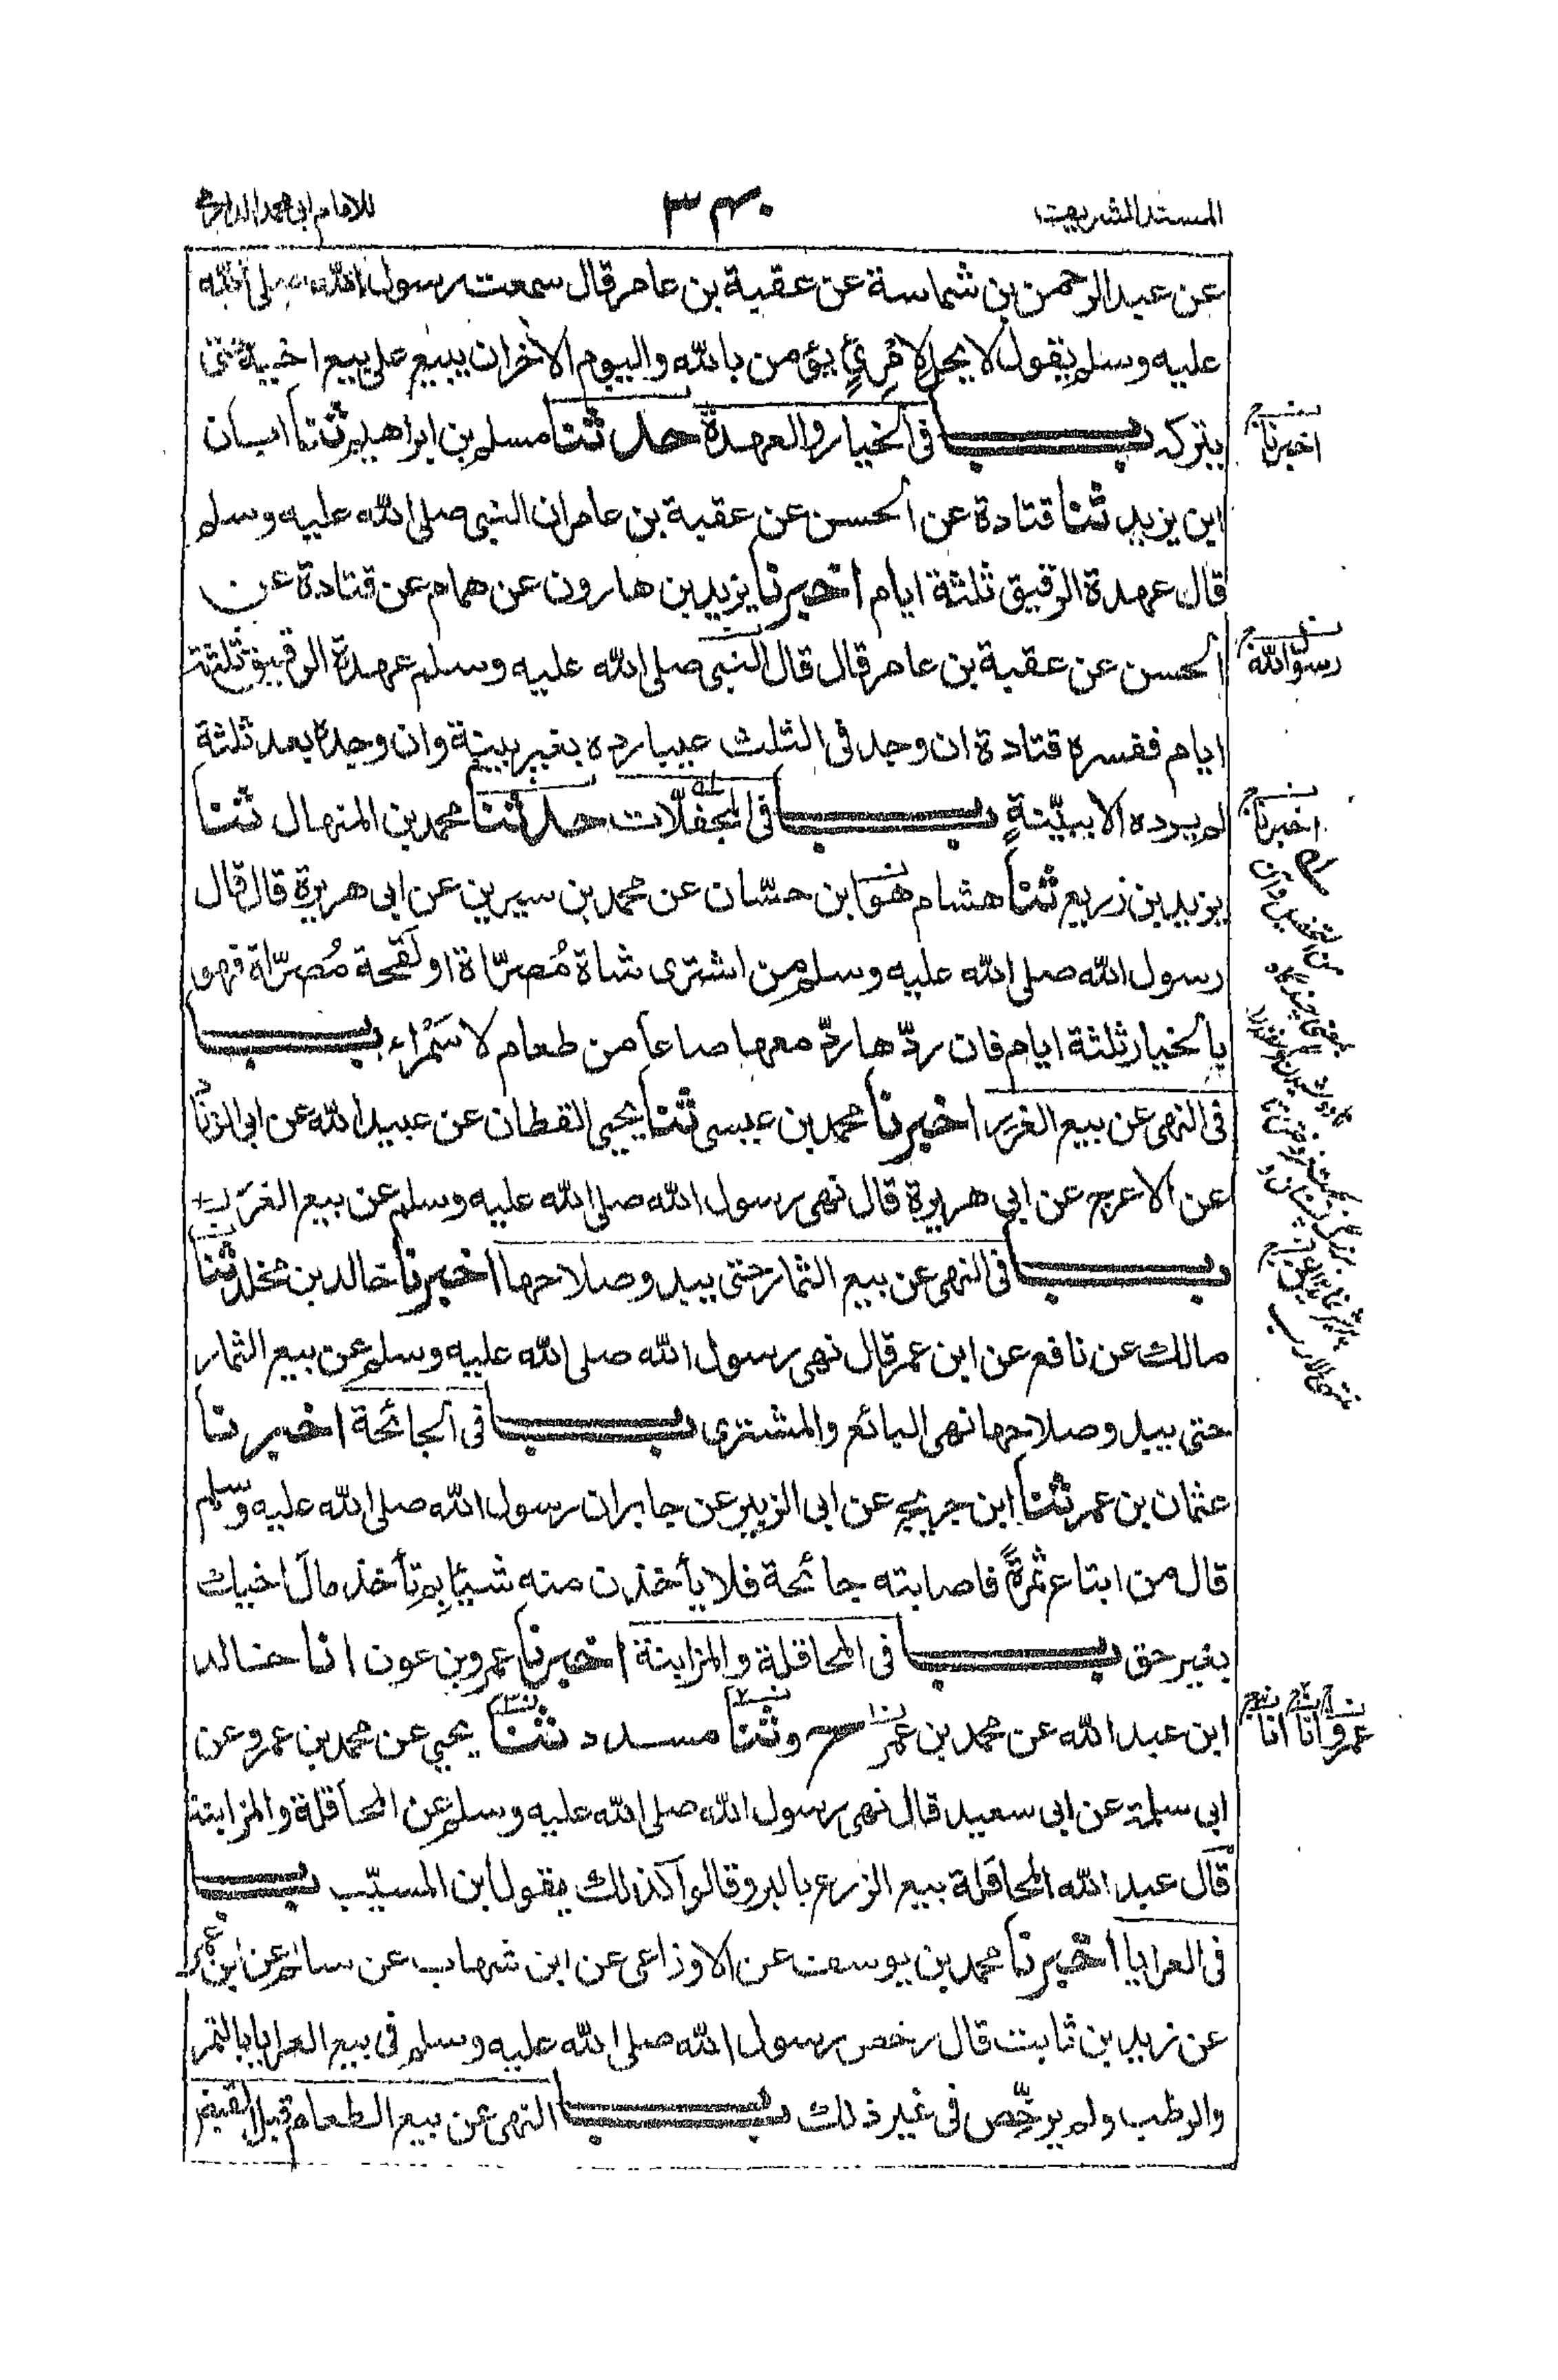 المسند الشريف
٣٤٠
للامام ابي محمد الدارمي
عن عبد الرحمن بن شماسة عن عقبة بن عامر قال سمعت رسول الله صلى الله
عليه وسلم يقول لا يحل لامرئٍ يؤمن بالله واليوم الاخر ان يبيع على بيع اخيه حتى
يتركه باب في الخيار والعهدة حدثنا مسلم بن ابراهيم ثنا ابان
ابن يزيد ثنا قتادة عن الحسن عن عقبة بن عامر ان النبي صلى الله عليه وسلم
قال عهدة الرقيق ثلثة ايام اخبرنا يزيد بن هارون عن همام عن قتادة عن
الحسن عن عقبة بن عامر قال قال النبي صلى الله عليه وسلم عهدة الرقيق ثلثة
ايام ففسره قتادة ان وجد في الثلث عيبا رده بغير بينة وان وجده بعد ثلثة
لم يرده الا ببيّنةٍ باب في المحفّلات حدثنا محمد بن المنهال ثنا
يزيد بن زريع ثنا هشام هو ابن حسّان عن محمد بن سيرين عن ابي هريرة قال قال
رسول الله صلى الله عليه وسلم من اشترى شاة مُصرّاة او لقحة مُصرّاة فهو
بالخيار ثلثة ايام فان ردّها ردّ معها صاعا من طعام لا سَمْراء باب
في النهي عن بيع الغرر اخبرنا محمد بن عيسى ثنا يحيى القطان عن عبيد الله عن ابي الزناد
عن الاعرج عن ابي هريرة قال نهى رسول الله صلى الله عليه وسلم عن بيع الغرر
باب في النهي عن بيع الثمار حتى يبدو صلاحها اخبرنا خالد بن مخلد ثنا
مالك عن نافع عن ابن عمر قال نهى رسول الله صلى الله عليه وسلم عن بيع الثمار
حتى يبدو صلاحها نهى البائع والمشترى باب في الجائحة اخبرنا
عثمان بن عمر ثنا ابن جريج عن ابي الزبير عن جابر ان رسول الله صلى الله عليه وسلم
قال من ابتاع ثمرةً فاصابته جائحة فلا يأخذن منه شيئا بم تأخذ مال اخيك
بغير حق باب في المحاقلة والمزابنة اخبرنا عمرو بن عون انا خالد
ابن عبد الله عن محمد بن عمر ح وثنا مسدد ثنا يحيى عن محمد بن عمرو عن
ابي سلمة عن ابي سعيد قال نهى رسول الله صلى الله عليه وسلم عن المحاقلة والمزابنة
قال عبد الله المحاقلة بيع الزرع بالبر وقالوا كذلك يقول ابن المسيّب باب
في العرايا اخبرنا محمد بن يوسف عن الاوزاعي عن ابن شهاب عن سالم عن ابن عمر
عن زيد بن ثابت قال رخص رسول الله صلى الله عليه وسلم في بيع العرايا بالتمر
والرطب ولم يرخّص في غير ذلك باب النهي عن بيع الطعام قبل القبض
اخبرنا
رسول الله
اخبرنا
عمرو انا انا